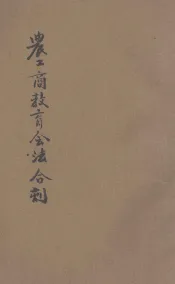 農工商教育会法合刻